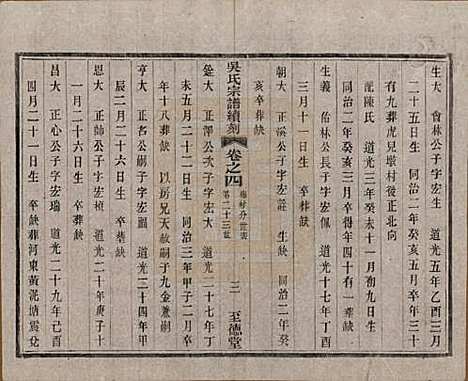 生大 會林公子字宏生 道光五年乙酉三月
二十五日生 卒同治二年癸亥五月年三十
有九葬虎兒墩村後正北向
配陳氏 道光三年癸未十一月初九日生
同治二年癸亥三月卒得年四十有一葬缺
生義 佁林公長子字宏佩 道光十七年丁酉
三月十一日生 卒缺 葬缺
朝大 正溪公子字宏詮 生缺 同治二年癸
亥卒葬缺
吳氏宗譜續刻
卷之四
第二十三世
三
至德堂
銓大 正澤公次子字宏大 道光二十七年丁
未五月二十二日生 同治三年甲子二月卒
年十八葬缺 以房兄天赦嗣子九金兼嗣
亨大 正名公嗣子字宏 道光二十四年甲
辰二月二十六日生 卒葬缺
恩大 正帥公子字宏楨 道光二十年庚子十
一月二十六日生 卒葬缺
昌大 正心公子字宏瑞 道光二十九年己
四月二十一日生 卒缺葬河東黃泥塘震兌